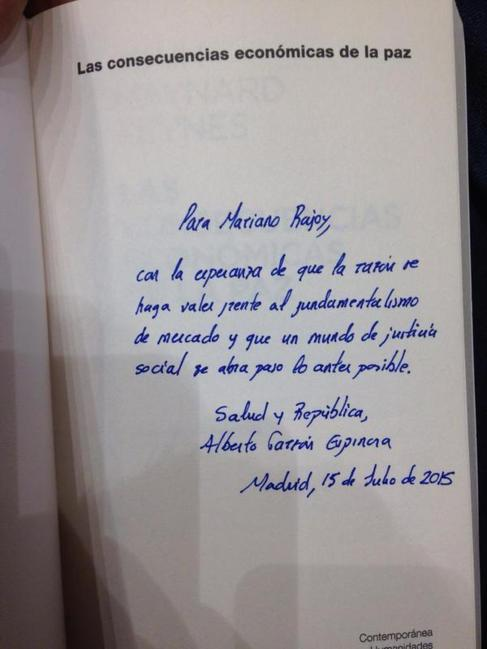 Las consecuencias económicas de la paz
Para Mariano Rajoy,
con la esperanza de que la razón se
haga valer frente al fundamentalismo
de mercado y que un mundo de justicia
social se abra paso lo antes posible.
Salud y República,
Alberto Garzón Espinosa
Madrid, 15 de Julio de 2015
Contemporánea
Humanidades